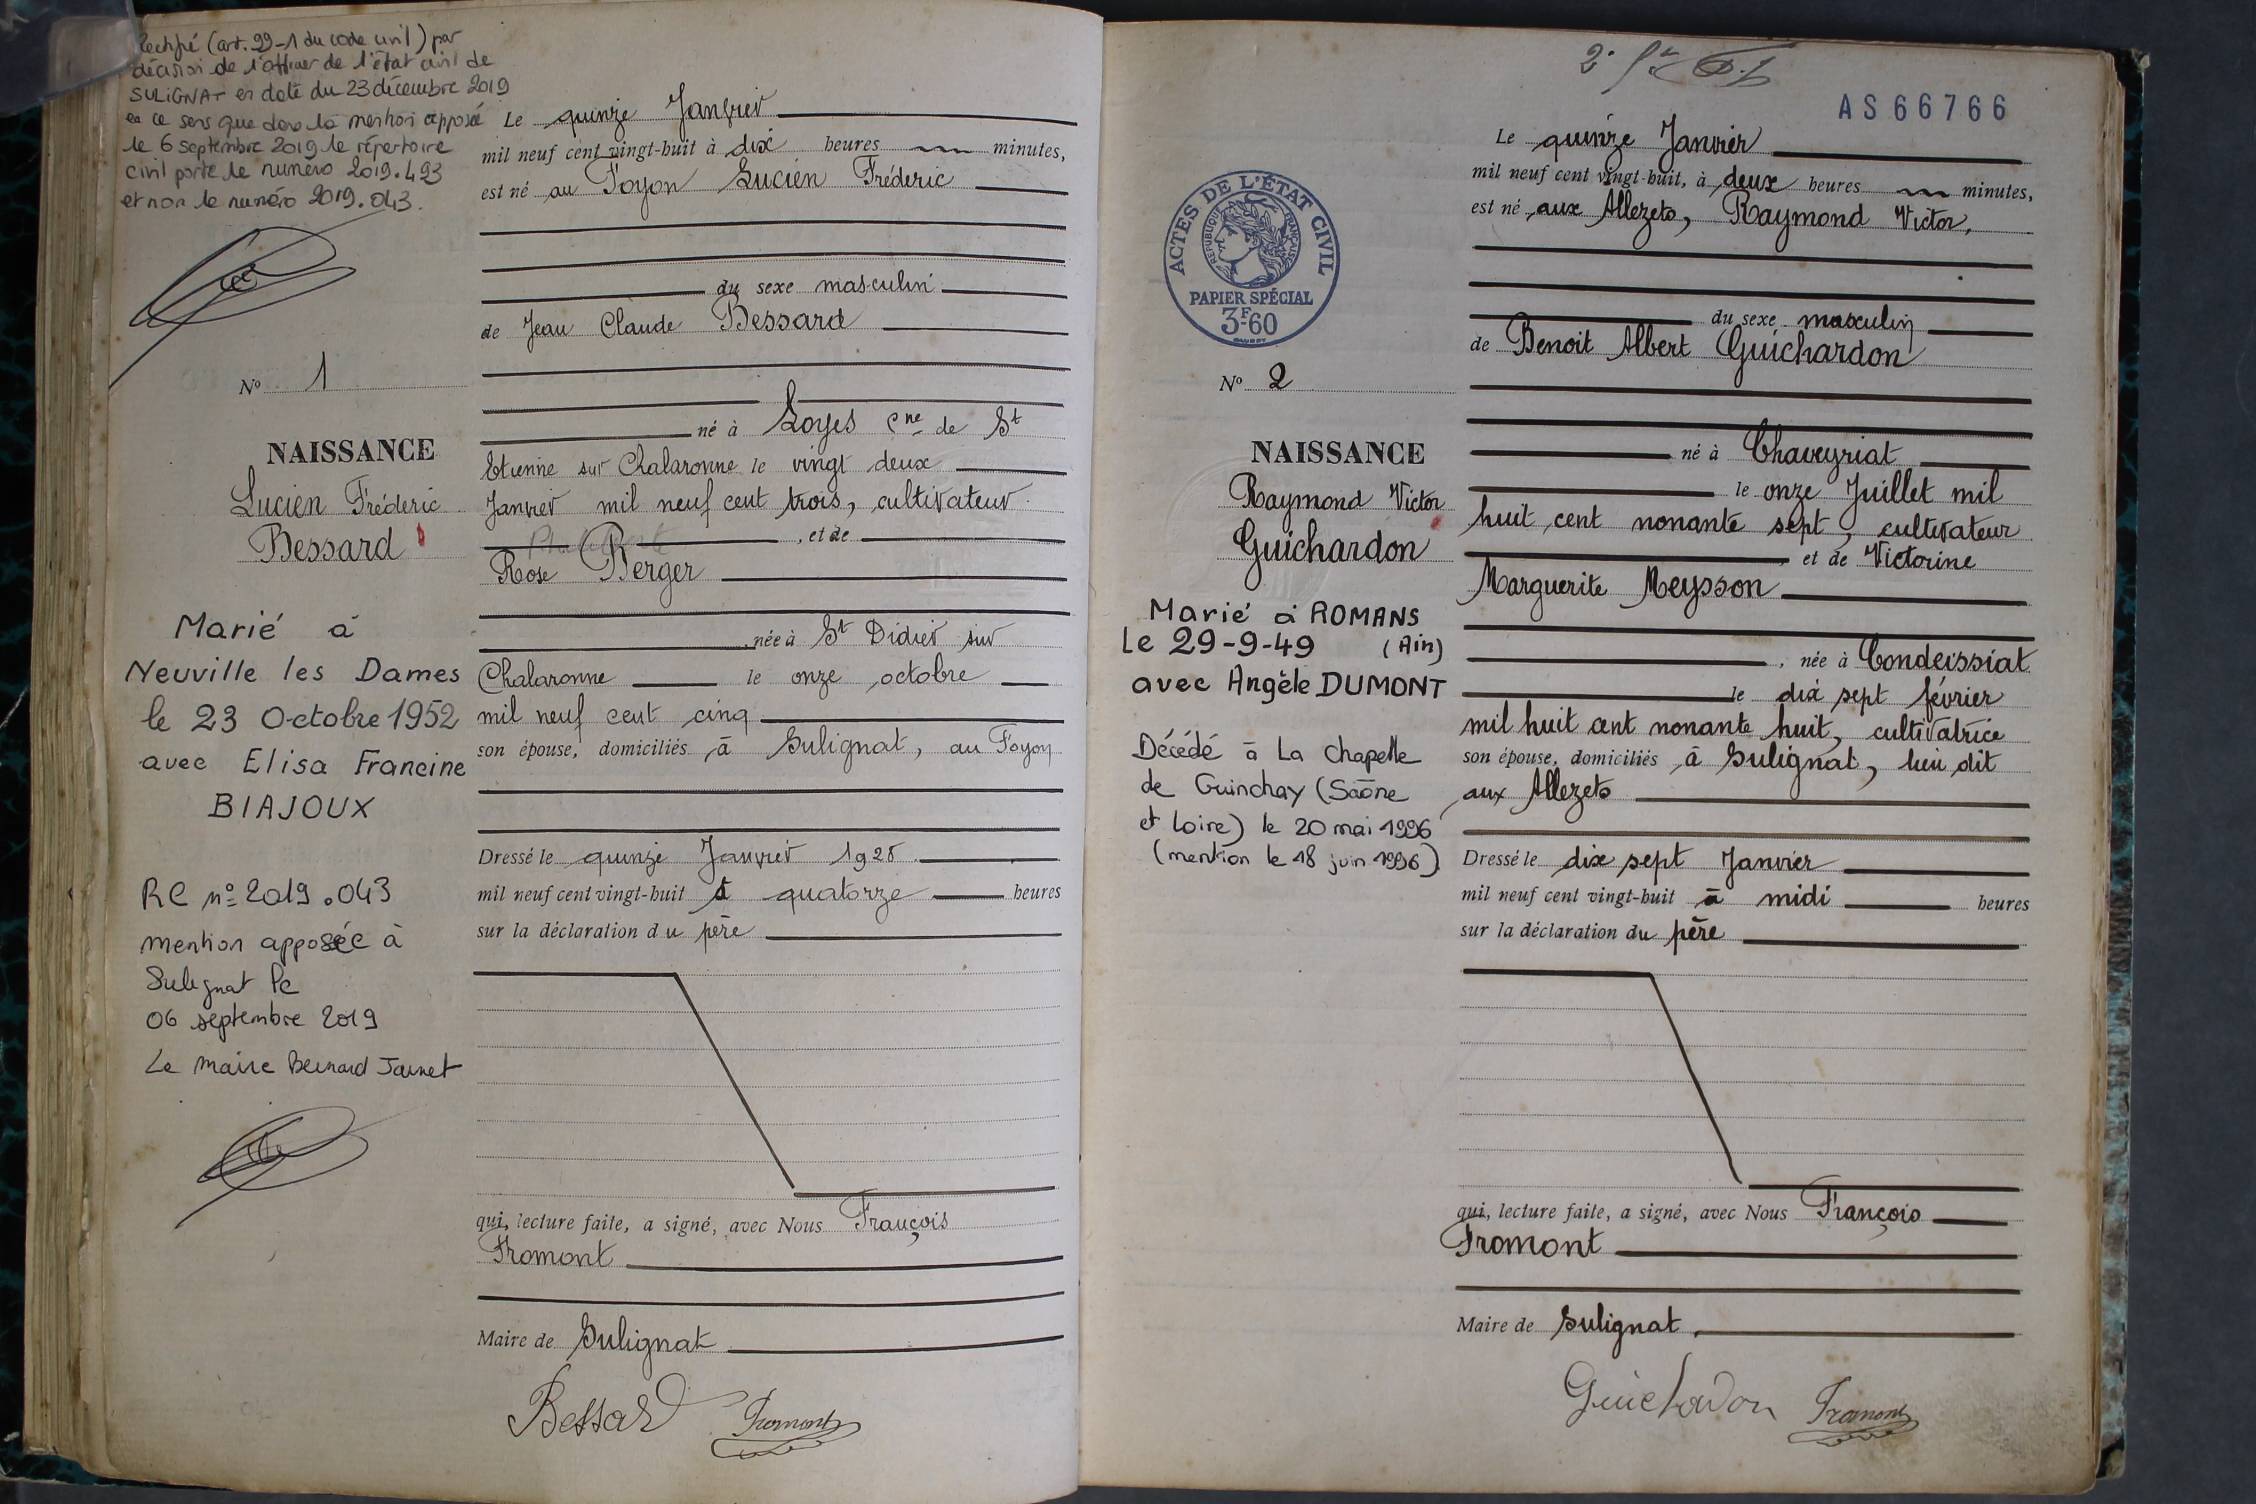 Rectifié (art. 99-1 du code civil) par
décision de l'officier de l'état civil de
SULIGNAT en date du 23 décembre 2019
en ce sens que dans la mention apposée
le 6 septembre 2019 le répertoire
civil porte le numéro 2019.493
et non le numéro 2019.043.
N° 1
NAISSANCE
Lucien Fréderic
Bessard
Marié à
Neuville les Dames
le 23 Octobre 1952
avec Elisa Francine
BIAJOUX
RC n° 2019.043
mention apposée à
Sulignat le
06 septembre 2019
Le maire Bernard Jannet
Le quinze Janvier
mil neuf cent vingt-huit à dix heures minutes,
est né au Foyon Lucien Fréderic
du sexe masculin
de Jean Claude Bessard
né à Loyes Cne de St
Etienne sur Chalaronne le vingt deux
Janvier mil neuf cent trois, cultivateur
, et de
Rose Berger
, née à St Didier sur
Chalaronne le onze octobre
mil neuf cent cinq
son épouse, domiciliés à Sulignat, au Foyon
Dressé le quinze Janvier 1928
mil neuf cent vingt-huit à quatorze heures
sur la déclaration du père
qui, lecture faite, a signé, avec Nous François
Fromont
Maire de Sulignat
Bessard Fromont
AS66766
ACTES DE L'ÉTAT CIVIL
RÉPUBLIQUE FRANÇAISE
PAPIER SPÉCIAL
3F60
N° 2
NAISSANCE
Raymond Victor
Guichardon
Marié à ROMANS
Le 29-9-49 (Ain)
avec Angèle DUMONT
Décédé à La Chapelle
de Guinchay (Saône
et Loire) le 20 mai 1996
(mention le 18 juin 1996)
Le quinze Janvier
mil neuf cent vingt-huit, à deux heures minutes,
est né aux Allezets, Raymond Victor,
du sexe masculin
de Benoit Albert Guichardon
né à Chaveyriat
le onze Juillet mil
huit cent nonante sept, cultivateur
et de Victorine
Marguerite Meysson
, née à Condeissiat
le dix sept février
mil huit cent nonante huit, cultivatrice
son épouse, domiciliés à Sulignat, lieu dit
aux Allezets
Dressé le dix sept Janvier
mil neuf cent vingt-huit à midi heures
sur la déclaration du père
qui, lecture faite, a signé, avec Nous François
Fromont
Maire de Sulignat.
Guichardon Fromont